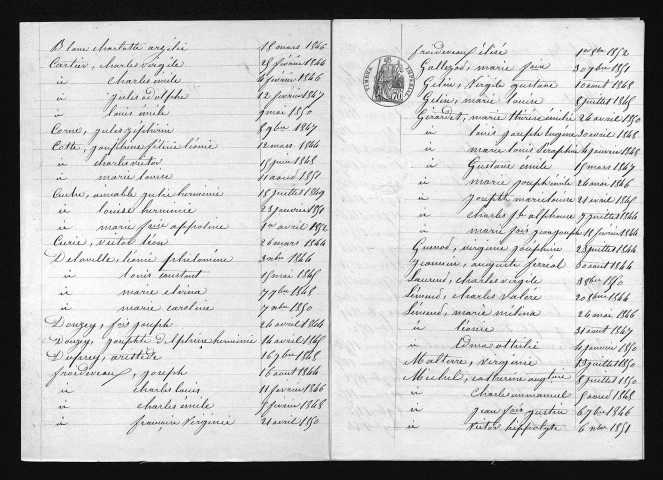 Blanc charlotte argélie 18 mars 1846
Cartier, charles virgile 28 février 1844
id charles émile 4 février 1846
id jules adolphe 12 février 1847
id louis émile 9 mai 1850
Corne, jules zéphirin 8 9bre 1847
Cotte, joséphine félicie léonie 12 mars 1844
id charles victor 15 juin 1848
id marie louise 11 août 1851
Cuche, aimable julie herminie 18 juillet 1849
id louise herminie 23 janvier 1851
id marie foise appoline 1er avril 1852
Curie, victor léon 26 mars 1844
Deloulle, léonie philomène 3 xbre 1846
id louis constant 15 mai 1848
id marie elvina 7 7bre 1848
id marie caroline 7 xbre 1850
Donzey, fois joseph 24 avril 1844
Donzey, josephte delphine herminie 14 avril 1848
Duprey, aristide 26 7bre 1848
froidevaux, joseph 16 août 1844
id charles louis 11 février 1846
id charles émile 9 février 1848
id françois virginie 21 avril 1850
froidevaux élise 1er 8bre 1852
Gallezot, marie foise 30 7bre 1851
Gelin, virgile gustave 10 août 1848
Gelin, marie louise 8 juillet 1848
Girardet, marie thérèse émilie 26 avril 1850
id louis joseph eugène 30 avril 1848
id marie louis séraphin 4 janvier 1848
id Gustave émile 15 mars 1847
id marie joseph émile 24 mai 1846
id josephte marie louise 21 avril 1848
id charles fs alphonse 7 juillet 1844
id marie fois jeanjoseph 18 février 1844
Guenot, virginie joséphine 23 juillet 1844
Jeannin, auguste ferréol 30 août 1844
Laurent, charles virgile 3 8bre 1850
Simend, charles valère 20 8bre 1844
Simend, marie mélina 24 mai 1846
id léonie 31 août 1847
id Edma ottilie 4 janvier 1850
Malterre, virginie 13 juillet 1850
Michel, catherine augtine 8 juillet 1850
id Charles emmanuel 8 août 1848
id jean fois justin 6 7bre 1846
id victor hippolyte 6 xbre 1851